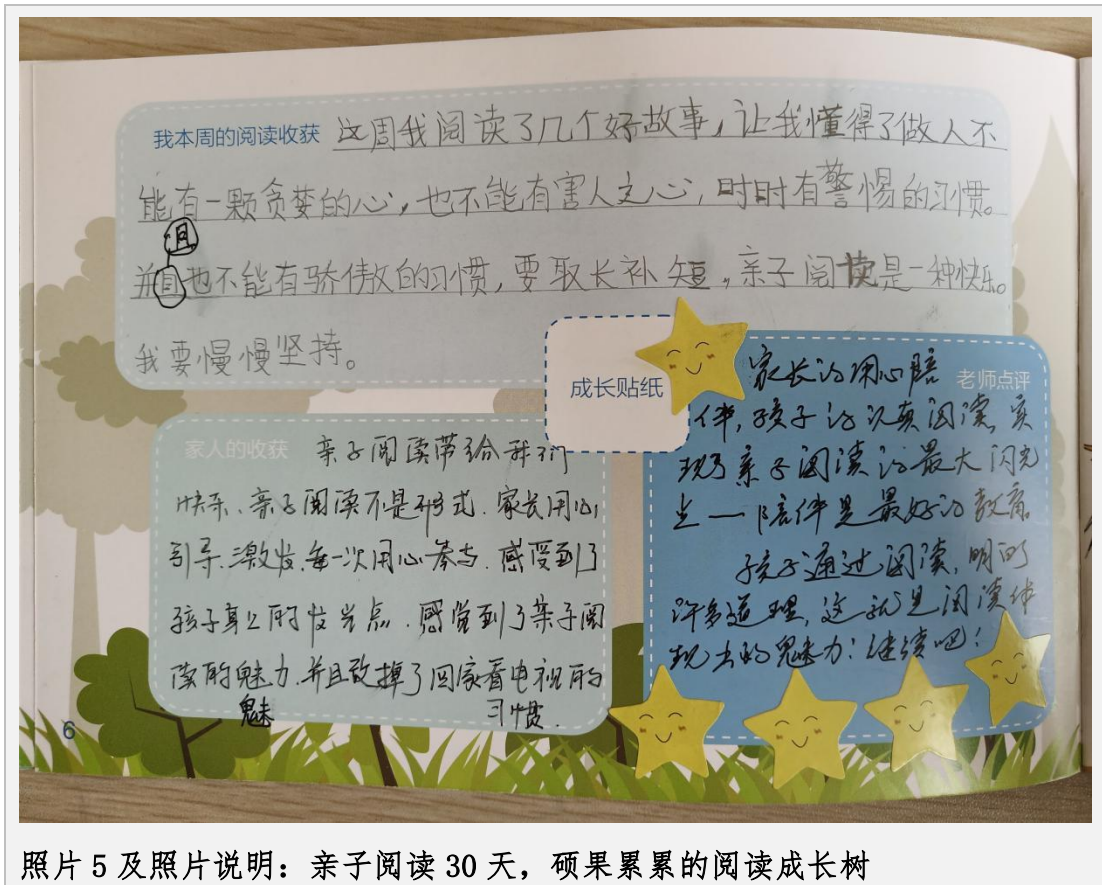 我本周的阅读收获 这周我阅读了几个好故事，让我懂得了做人不
能有一颗贪婪的心，也不能有害人之心，时时有警惕的习惯。
且
并且也不能有骄傲的习惯，要取长补短，亲子阅读是一种快乐。
我要慢慢坚持。
成长贴纸
家人的收获 亲子阅读带给我们
快乐、亲子阅读不是形式．家长用心，
引导．激发．每一次用心参与．感受到了
孩子身上的发光点．感觉到了亲子阅
读的魅力．并且改掉了回家看电视的
魅 习惯．
老师点评
家长的用心陪
伴，孩子的认真阅读，实
现了亲子阅读的最大闪光
点——陪伴是最好的教育。
孩子通过阅读，明白
许多道理，这就是阅读体
现出的魅力！继续吧！
6
照片 5 及照片说明：亲子阅读 30 天，硕果累累的阅读成长树